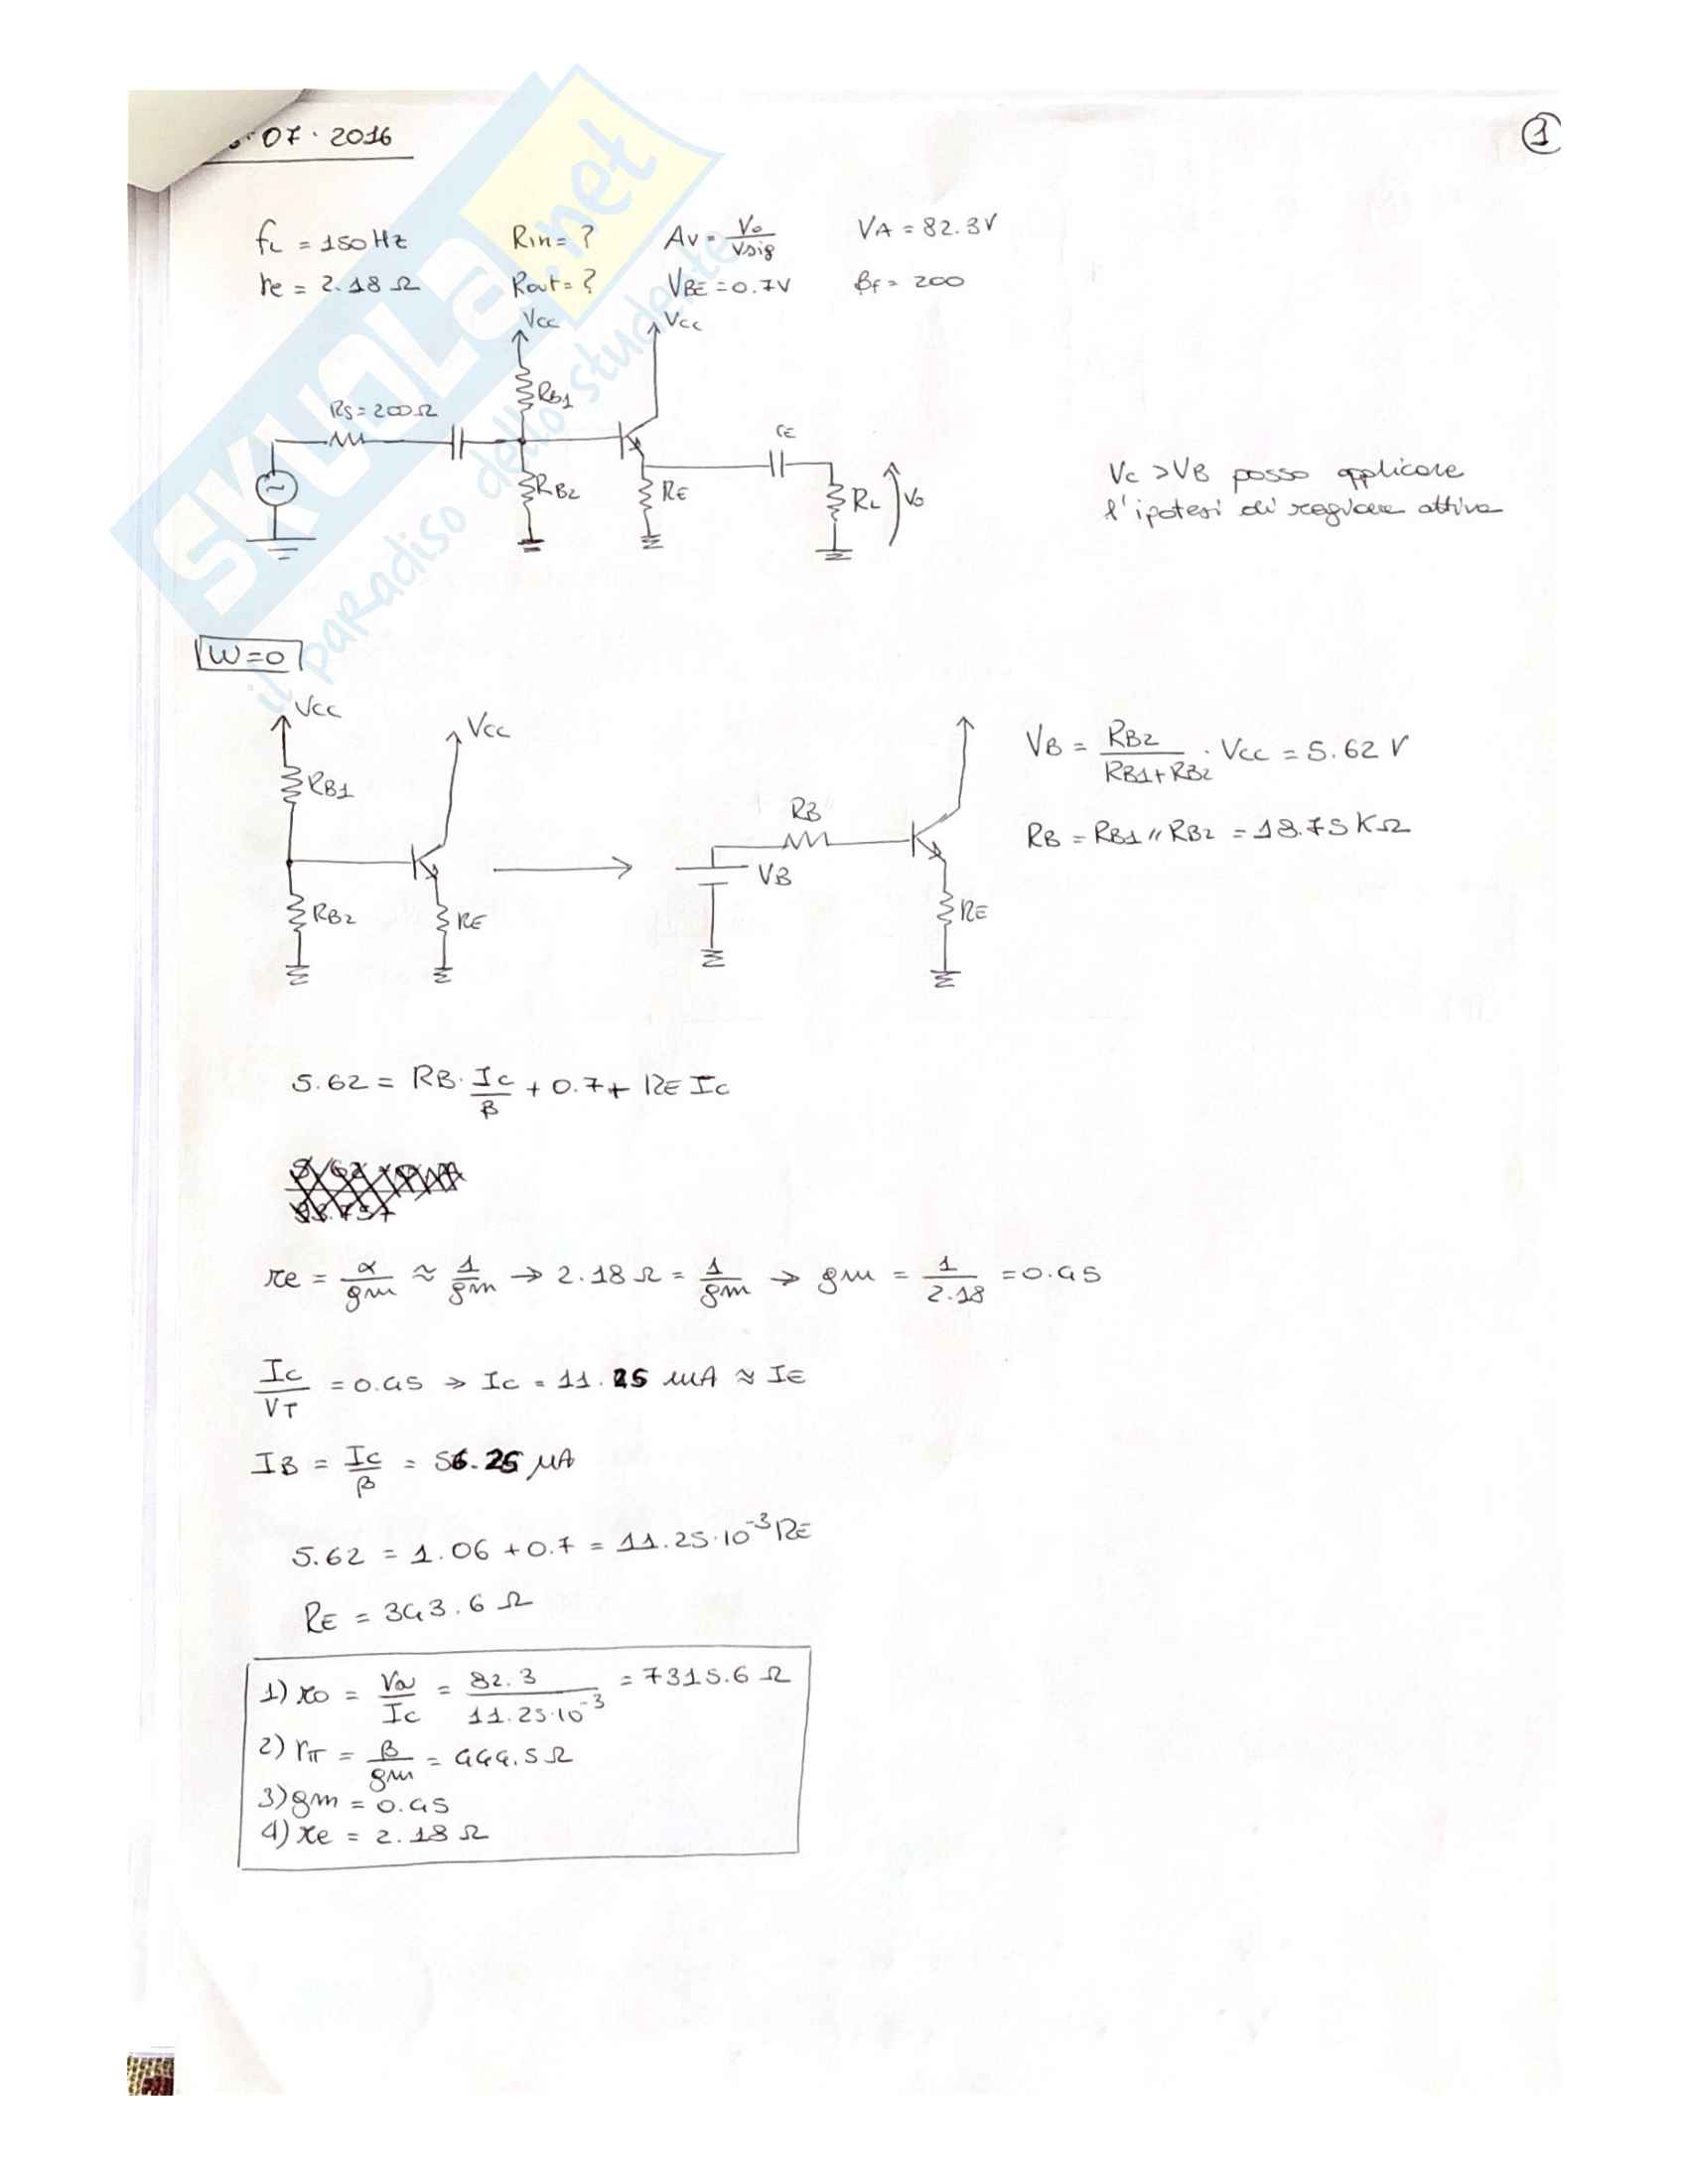 07.2016
1
fL = 150 Hz Rin = ? Av = Vo/Vsig VA = 82.3V
re = 2.18 Ω Rout = ? VBE = 0.7V βf = 200
Vcc Vcc
RB1
RS = 200Ω
CE
RB2 RE RL Vo
Vc > VB posso applicare
l'ipotesi di regione attiva
W=0
Vcc Vcc
RB1
RB2 RE
RB
VB
RE
VB = RB2/(RB1+RB2) · Vcc = 5.62 V
RB = RB1 // RB2 = 18.75 KΩ
5.62 = RB · Ic/β + 0.7 + RE Ic
re = α/gm ≈ 1/gm → 2.18 Ω = 1/gm → gm = 1/2.18 = 0.45
Ic/VT = 0.45 → Ic = 11.25 mA ≈ IE
IB = Ic/β = 56.25 μA
5.62 = 1.06 + 0.7 = 11.25·10⁻³ RE
RE = 343.6 Ω
1) ro = Va/Ic = 82.3/11.25·10⁻³ = 7315.6 Ω
2) rπ = β/gm = 444.5 Ω
3) gm = 0.45
4) re = 2.18 Ω
SKUOLA.net
il paradiso dello studente